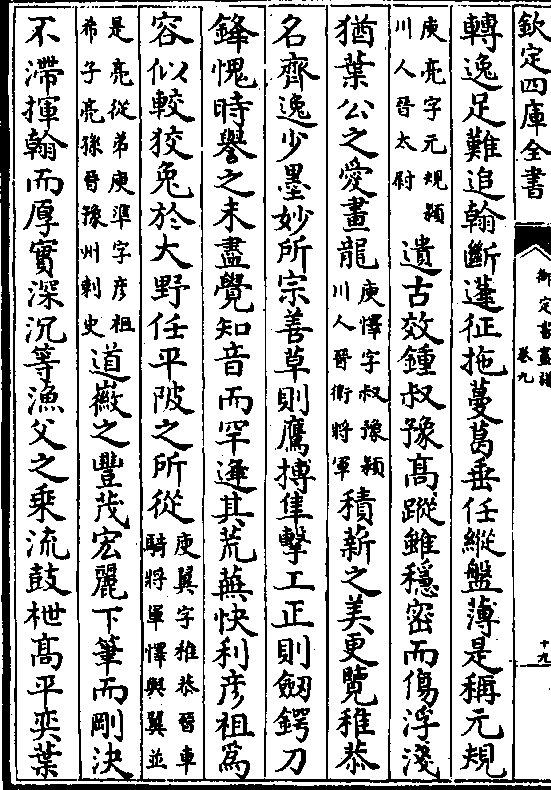 欽定四庫全書
卷九
十九
轉逸足難追翰斷蓬征拖蔓葛垂任縱盤薄是稱元規
庾亮字元規潁
川人晉太尉
遺古效鍾叔豫高蹤雖穩密而傷浮淺
猶葉公之愛畫龍
庾懌字叔豫潁
川人晉衛將軍
積薪之美更覽稚恭
名齊逸少墨妙所宗善草則鷹搏隼擊工正則劒鍔刀
鋒愧時譽之未盡覺知音而罕逢其荒蕪快利彥祖爲
容似較狡兔於大野任平陂之所從
庾翼字稚恭晉車
騎將軍懌與翼並
是亮從弟庾準字彥祖
希子亮孫晉豫州刺史
道徽之豐茂宏麗下筆而剛決
不滯揮翰而厚實深沉等漁父之乘流鼓枻高平奕葉